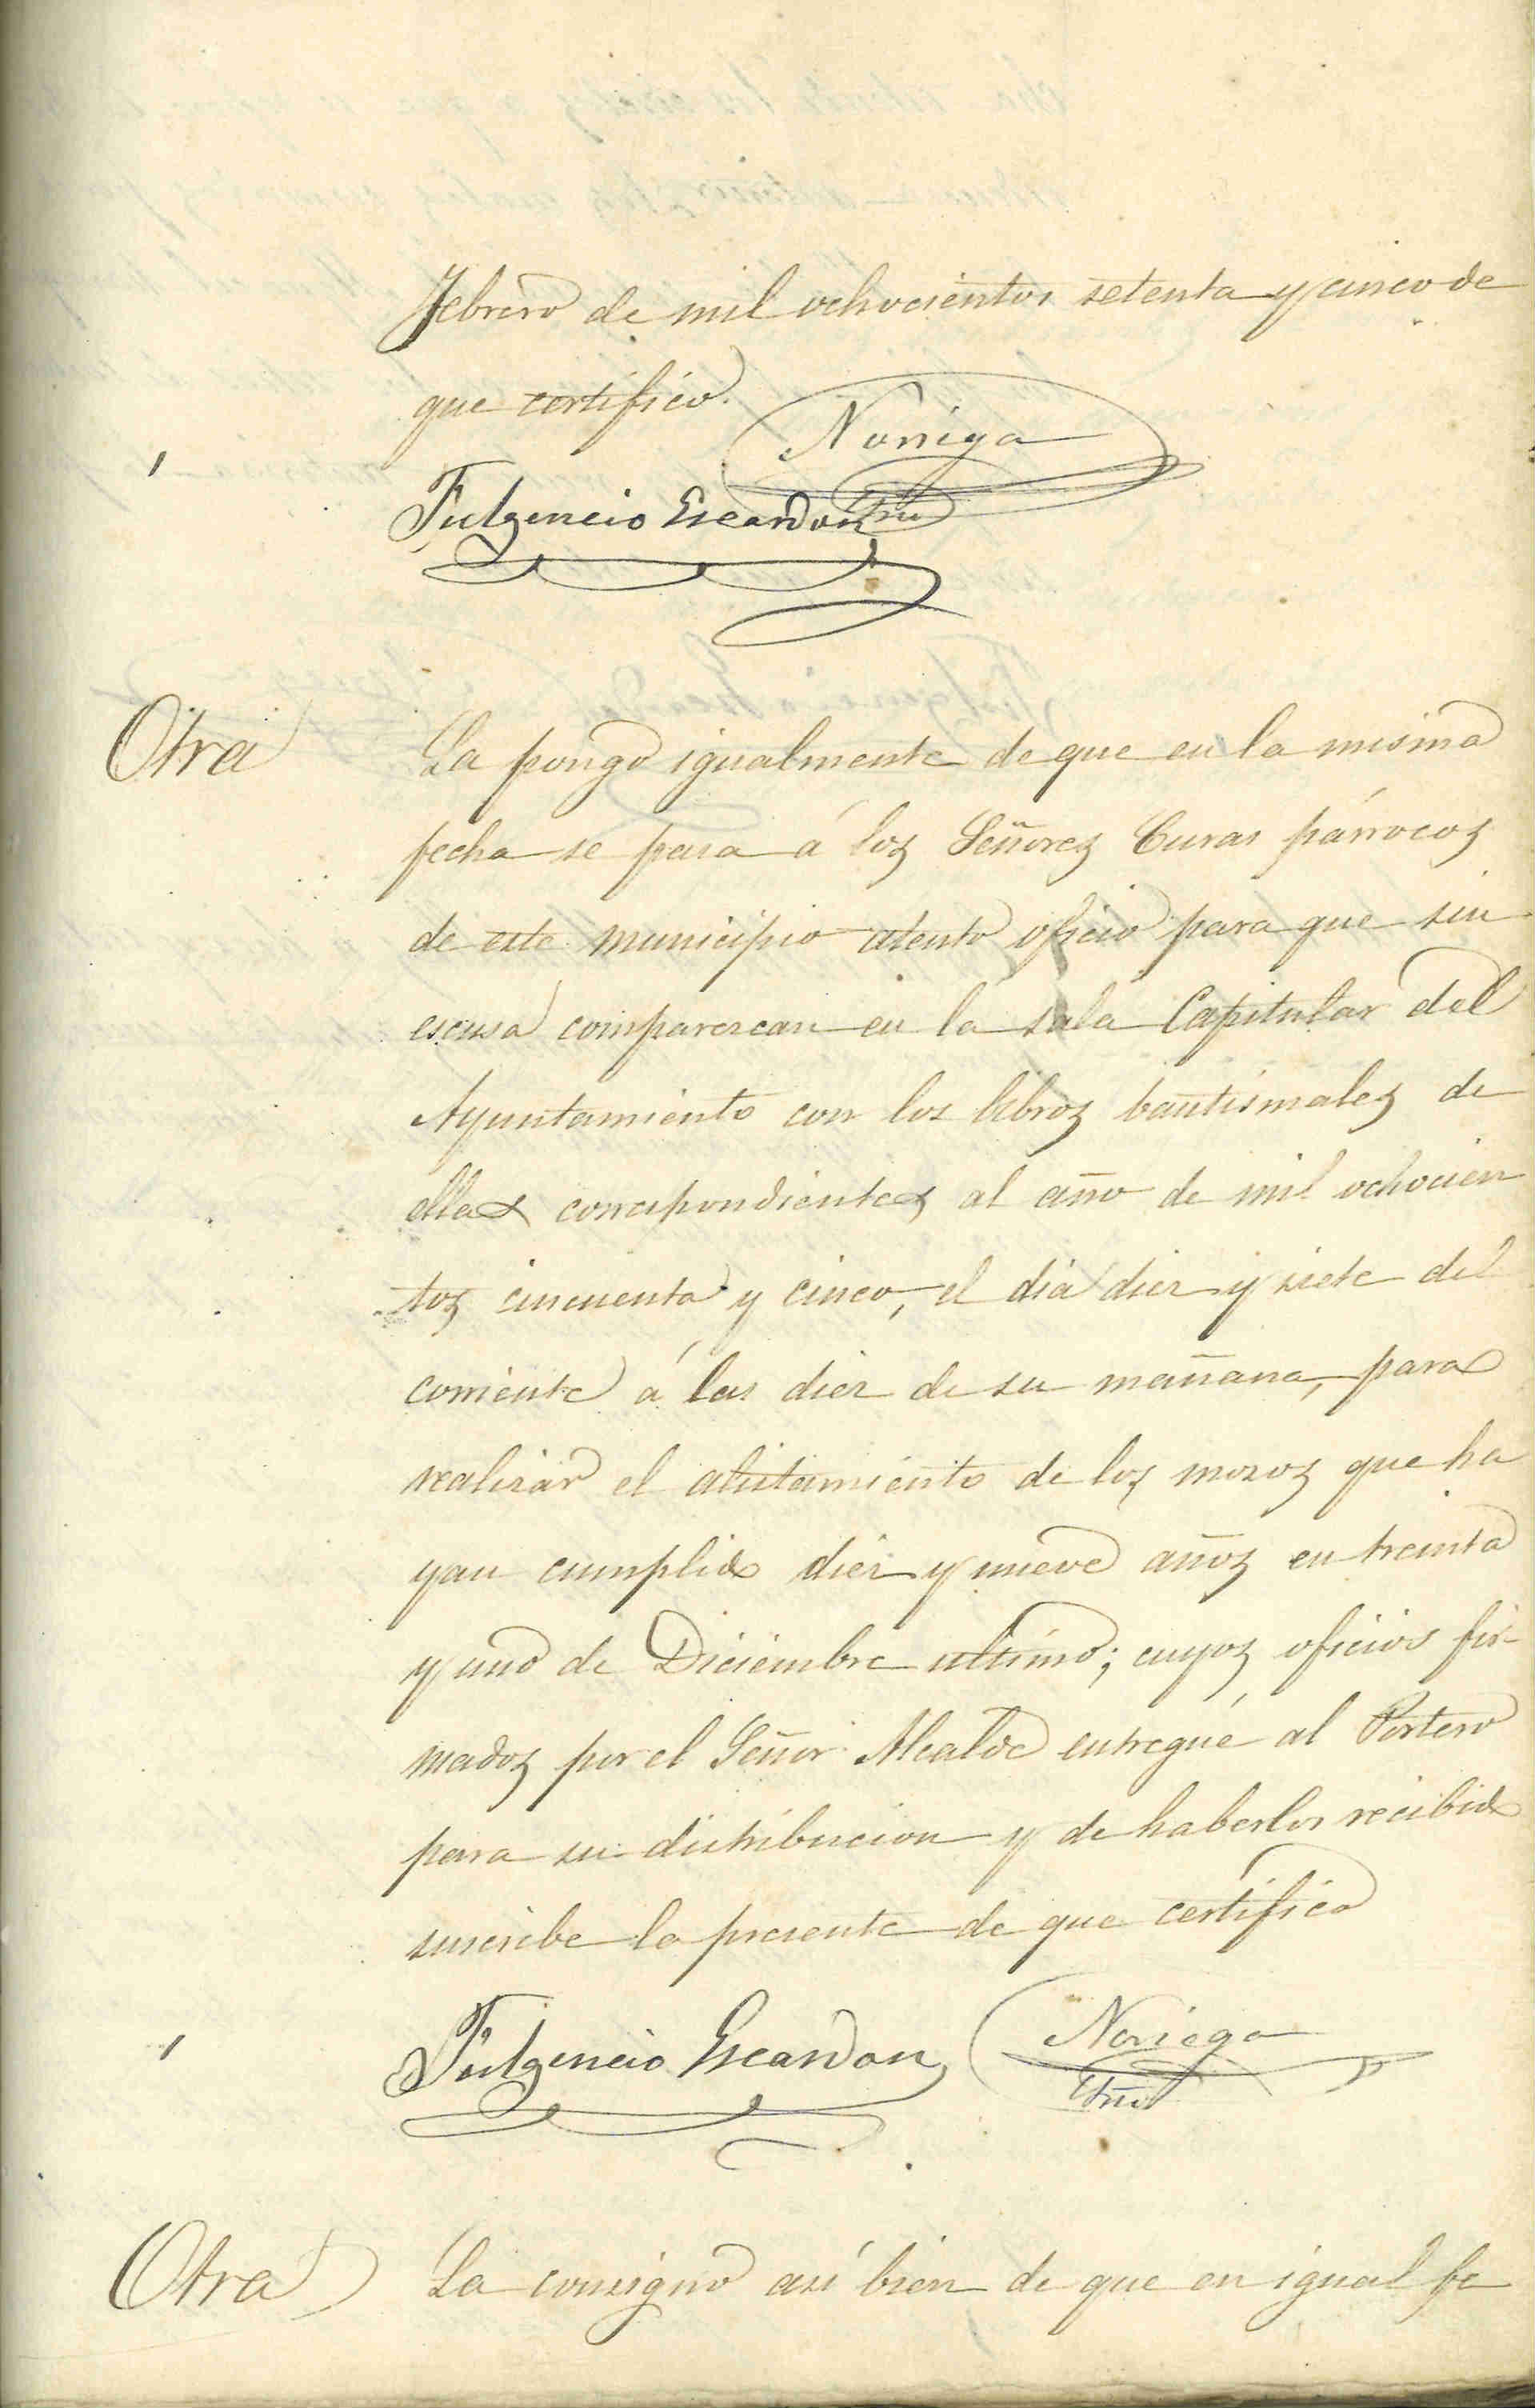 Febrero de mil ochocientos setenta y cinco de
que certifico.
Noriega
Fulgencio Escandon
Otra
La pongo igualmente de que en la misma
fecha se pasa á los Señores Curas párrocos
de este municipio atento oficio para que sin
escusa comparezcan en la sala Capitular del
Ayuntamiento con los libros bautismales de
ellas correspondientes al año de mil ochocien
tos cincuenta y cinco, el dia diez y siete del
corriente á las diez de su mañana, para
realizar el alistamiento de los mozos que ha
yan cumplido diez y nueve años en treinta
y uno de Diciembre ultimo; cuyos oficios fir-
mados por el Señor Alcalde entregué al Portero
para su distribucion y de haberlos recibido
suscribe la presente de que certifico
Fulgencio Escandon
Noriega
Otra
La consigno asi bien de que en igual fe